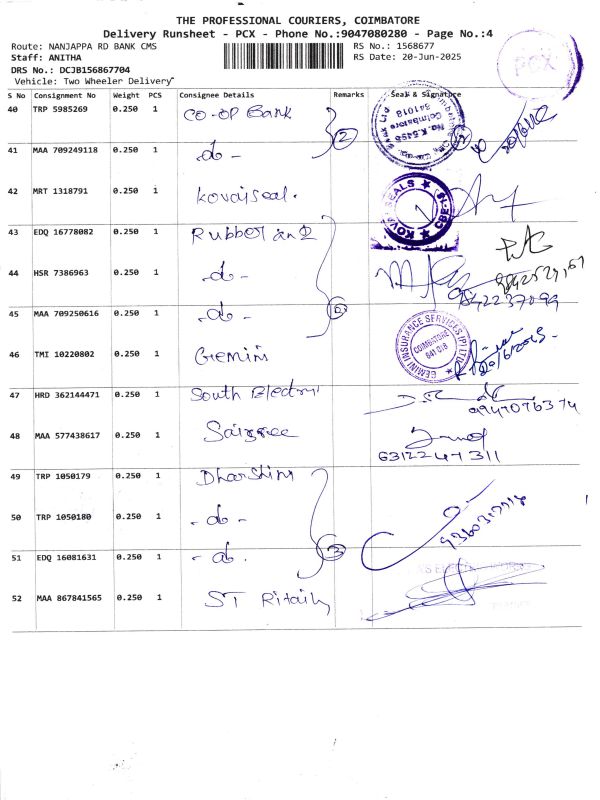 THE PROFESSIONAL COURIERS, COIMBATORE
Delivery Runsheet - PCX - Phone No.:9047080280 - Page No.:4
Route: NANJAPPA RD BANK CMS
RS No.: 1568677
Staff: ANITHA
RS Date: 20-Jun-2025
DRS No.: DCJB156867704
Vehicle: Two Wheeler Delivery
PCX
S No Consignment No Weight PCS Consignee Details Remarks Seal & Signature
40 TRP 5985269 0.250 1 CO-OP Bank
2
No.K.5495
Coimbatore
641018
41 MAA 709249118 0.250 1 -do-
42 MRT 1318791 0.250 1 Kovaiseal.
KOVAI SEALS ★ CBE-18 ★
43 EDQ 16778082 0.250 1 Rubber
44 HSR 7386963 0.250 1 -do-
9842237099
45 MAA 709250616 0.250 1 -do-
46 TMI 10220802 0.250 1 Gemini
GEMINI INSURANCE SERVICES (P) LTD.
COIMBATORE
641 018
20/6/2025
47 HRD 362144471 0.250 1 South Electri
9947076374
48 MAA 577438617 0.250 1 Saisree
6312247311
49 TRP 1050179 0.250 1 Dharshini
50 TRP 1050180 0.250 1 -do-
3
51 EDQ 16081631 0.250 1 -do.
52 MAA 867841565 0.250 1 ST